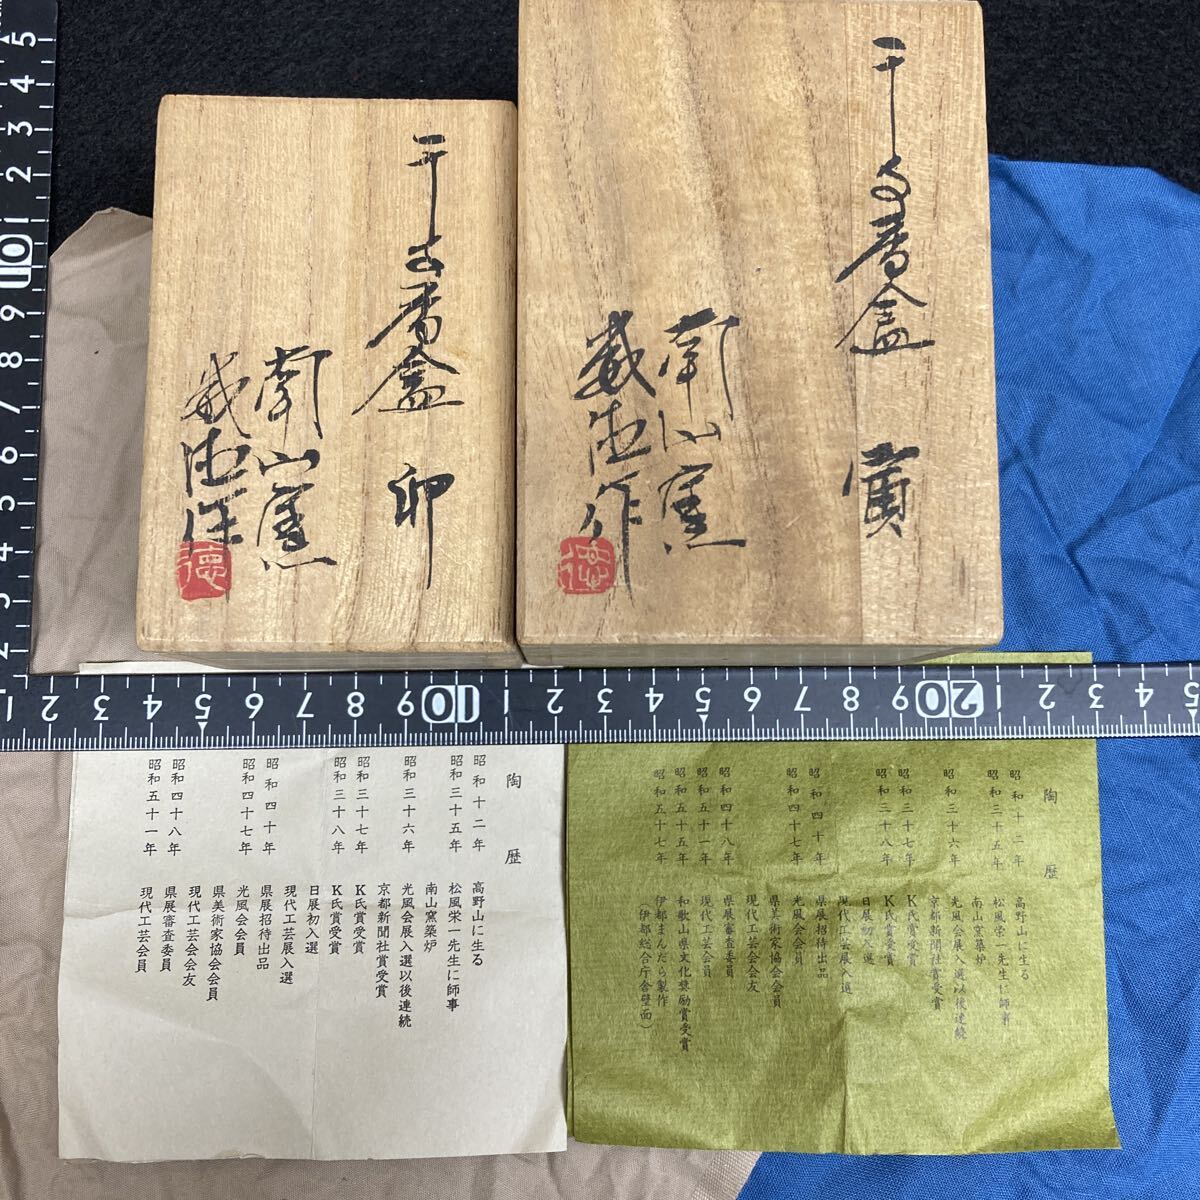 干支香盒 卯
南山窯
徳
干支香盒 寅
南山窯
作
徳
陶歴
昭和十二年 高野山に生る
昭和三十五年 松風栄一先生に師事
南山窯築炉
昭和三十六年 光風会展入選以後連続
京都新聞社賞受賞
昭和三十七年 K氏賞受賞
昭和三十八年 K氏賞受賞
日展初入選
現代工芸展入選
昭和四十年 県展招待出品
昭和四十七年 光風会会員
県美術家協会会員
現代工芸会会友
昭和四十八年 県展審査委員
昭和五十一年 現代工芸会員
陶歴
昭和十二年 高野山に生る
昭和三十五年 松風栄一先生に師事
南山窯築炉
昭和三十六年 光風会展入選以後連続
京都新聞社賞受賞
昭和三十七年 K氏賞受賞
昭和三十八年 K氏賞受賞
日展初入選
現代工芸展入選
昭和四十年 県展招待出品
昭和四十七年 光風会会員
県美術家協会会員
現代工芸会会友
昭和四十八年 県展審査委員
昭和五十一年 現代工芸会員
昭和五十五年 和歌山県文化奨励賞受賞
昭和五十七年 伊都まんだら製作
(伊都総合庁舎壁面)
5 4 3 2 1 10 9 8 7 6 5 4 3 2
1 2 3 4 5 6 7 8 9 10 1 2 3 4 5 6 7 8 9 20 1 2 3 4 5